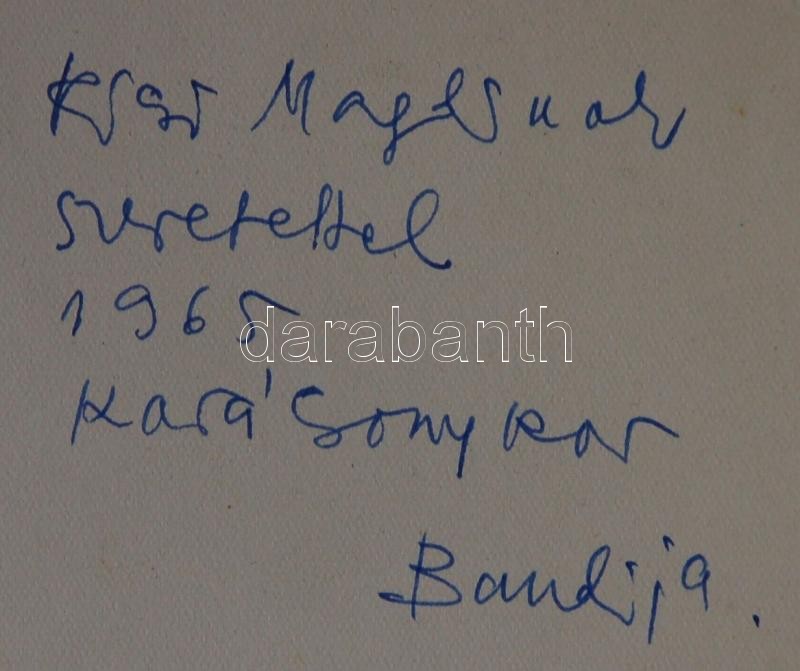 Kisó Magdinak
szeretettel
1965
Karácsonykor
Bandija.
darabanth